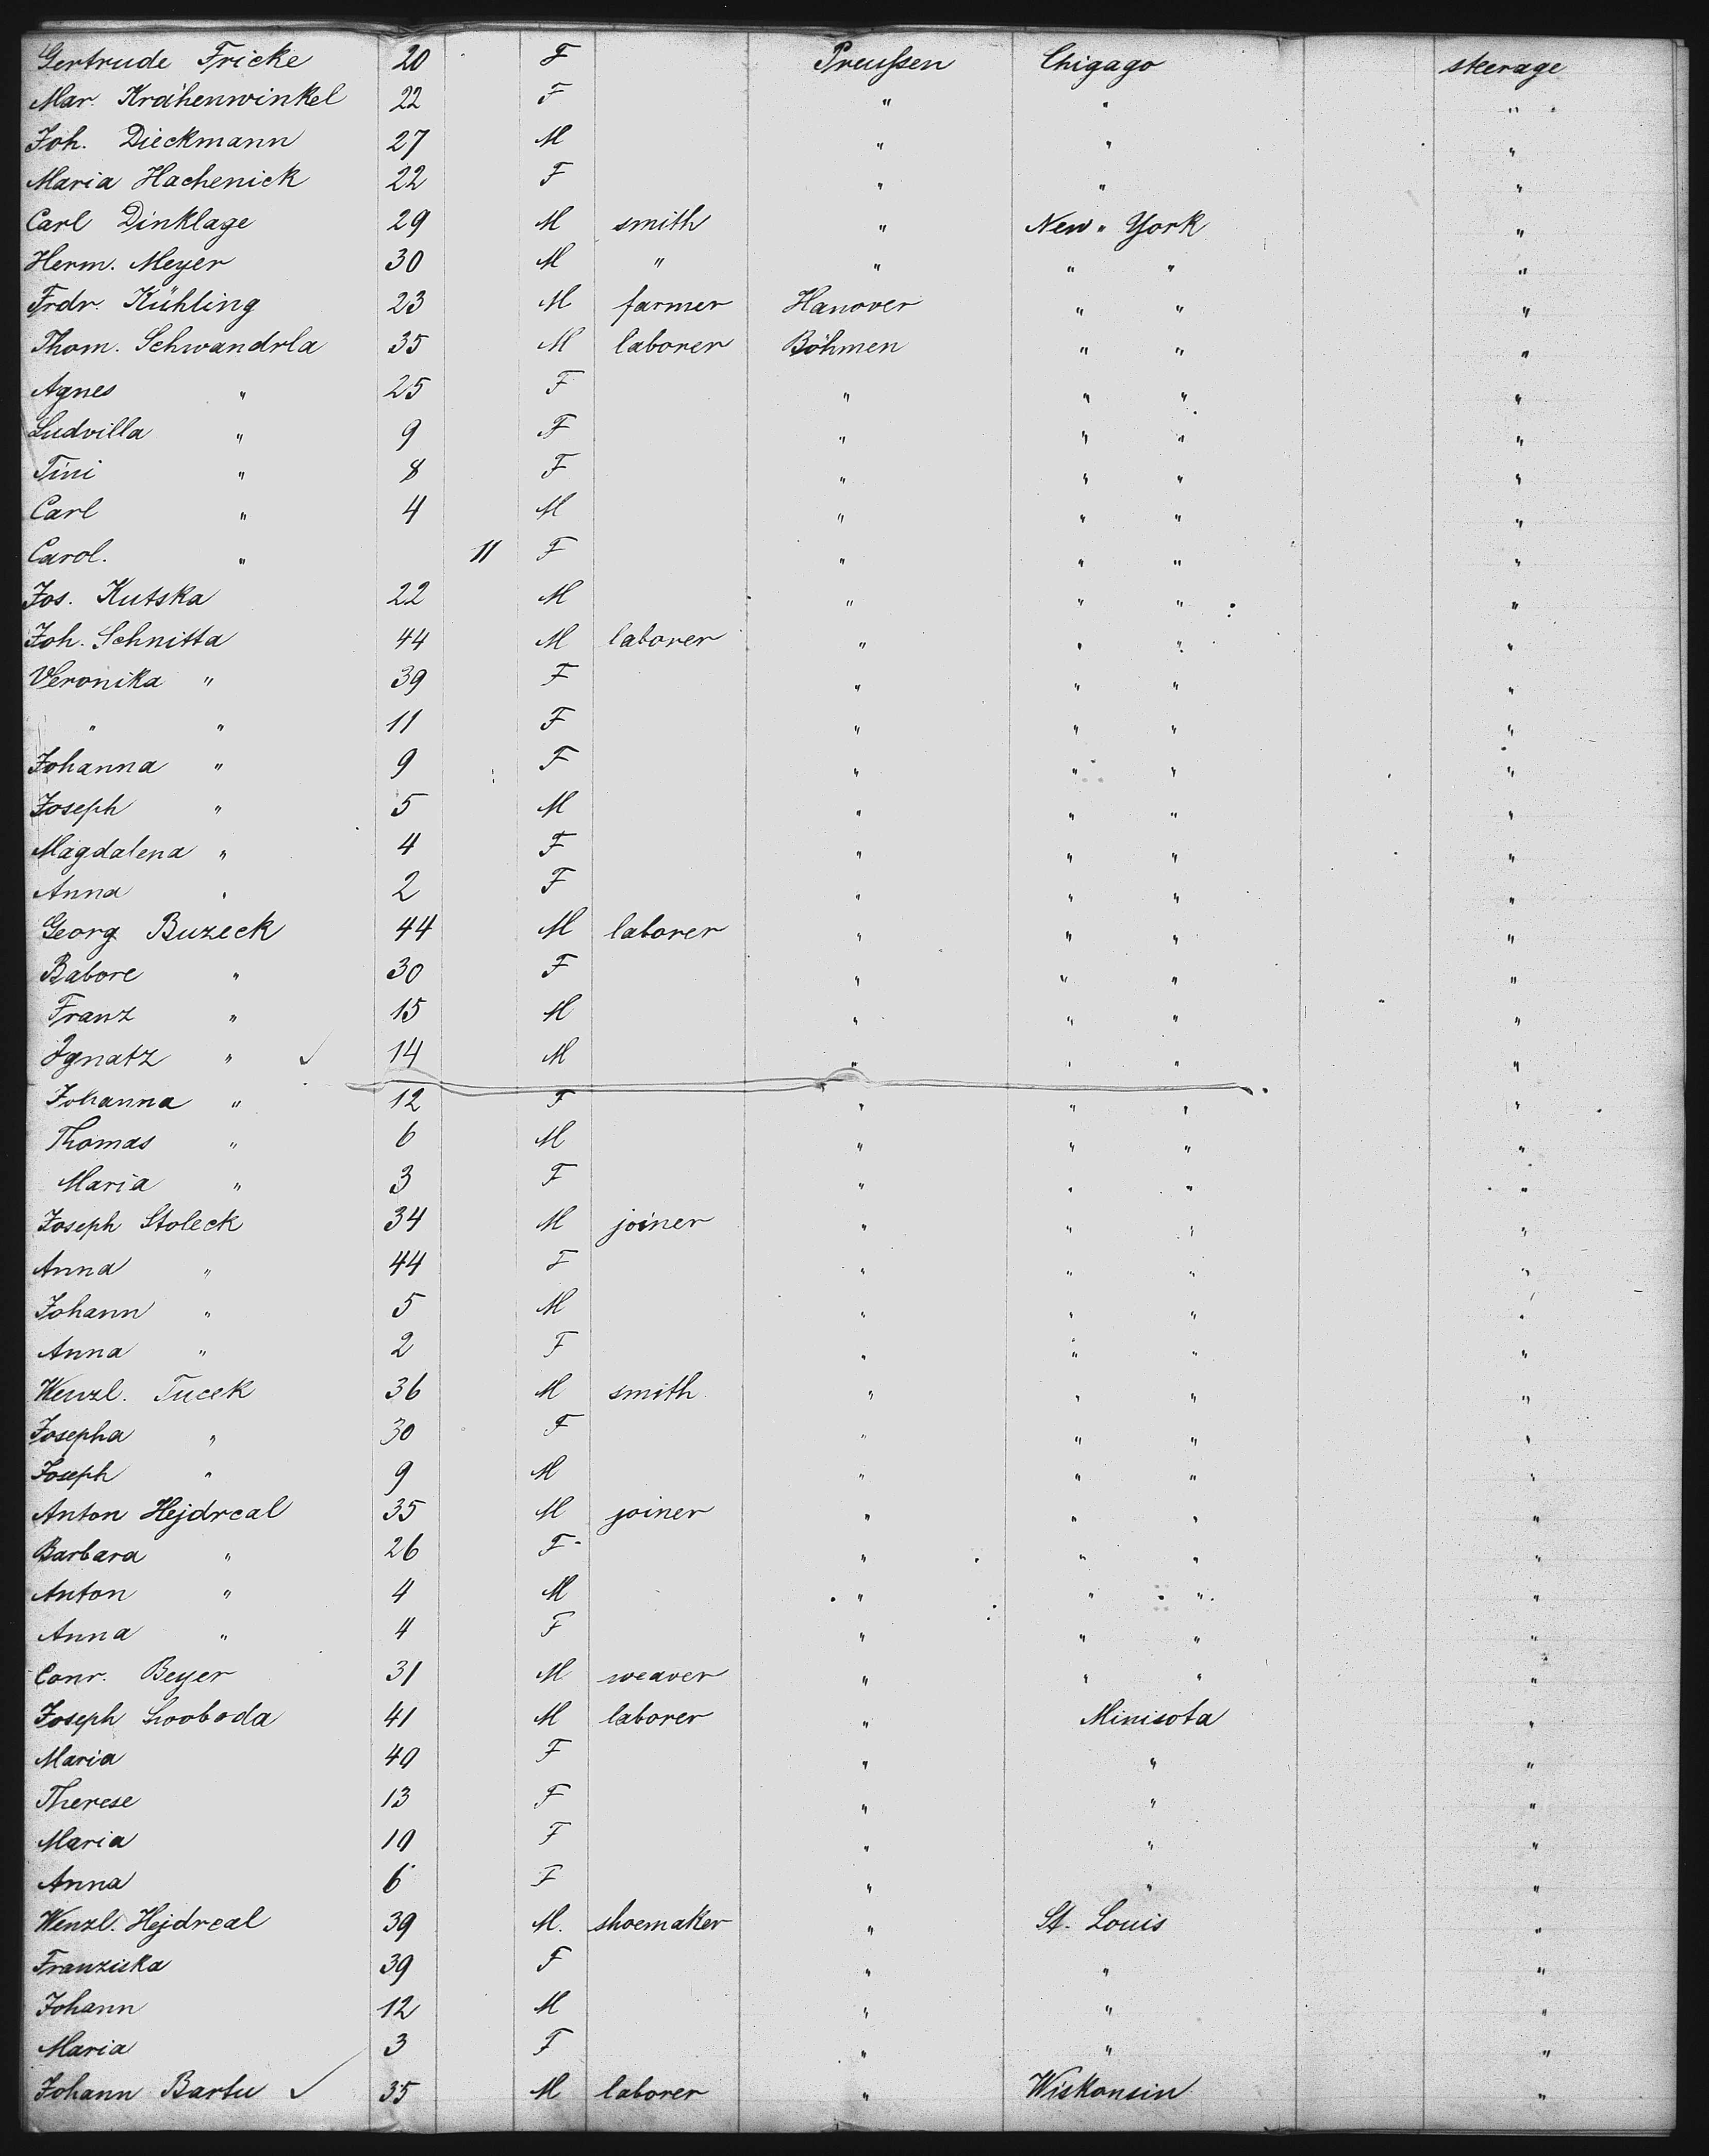 Gertrude Fricke 20 F Preußen Chigago steerage
Mar. Krähenwinkel 22 F " " "
Joh. Dieckmann 27 M " " "
Maria Hachenick 22 F " " "
Carl Dinklage 29 M smith " New " York "
Herm. Meyer 30 M " " " " "
Frdr. Kühling 23 M farmer Hanover " " "
Thom. Schwandrla 35 M laborer Böhmen " " "
Agnes " 25 F " " " "
Ludvilla " 9 F " " " "
Tini " 8 F " " " "
Carl " 4 M " " " "
Carol. " 11 F " " " "
Jos. Kutska 22 M " " " "
Joh. Schnitta 44 M laborer " " " "
Veronika " 39 F " " " "
" " 11 F " " " "
Johanna " 9 F " " " "
Joseph " 5 M " " " "
Magdalena " 4 F " " " "
Anna " 2 F " " " "
Georg Buzeck 44 M laborer " " " "
Babore " 30 F " " " "
Franz " 15 M " " " "
Ignatz " ✓ 14 M " " " "
Johanna " 12 F " " " "
Thomas " 6 M " " " "
Maria " 3 F " " " "
Joseph Stoleck 34 M joiner " " " "
Anna " 44 F " " " "
Johann " 5 M " " " "
Anna " 2 F " " " "
Wenzl. Tucek 36 M smith " " " "
Josepha " 30 F " " " "
Joseph " 9 M " " " "
Anton Hejdrcal 35 M joiner " " " "
Barbara " 26 F " " " "
Anton " 4 M " " " "
Anna " 4 F " " " "
Conr. Beyer 31 M weaver " " " "
Joseph Swoboda 41 M laborer " Minisota "
Maria 40 F " " "
Therese 13 F " " "
Maria 10 F " " "
Anna 6 F " " "
Wenzl. Hejdrcal 39 M. shoemaker " St. Louis "
Franziska 39 F " " "
Johann 12 M " " "
Maria 3 F " " "
Johann Bartu ✓ 35 M laborer " Wiskonsin "